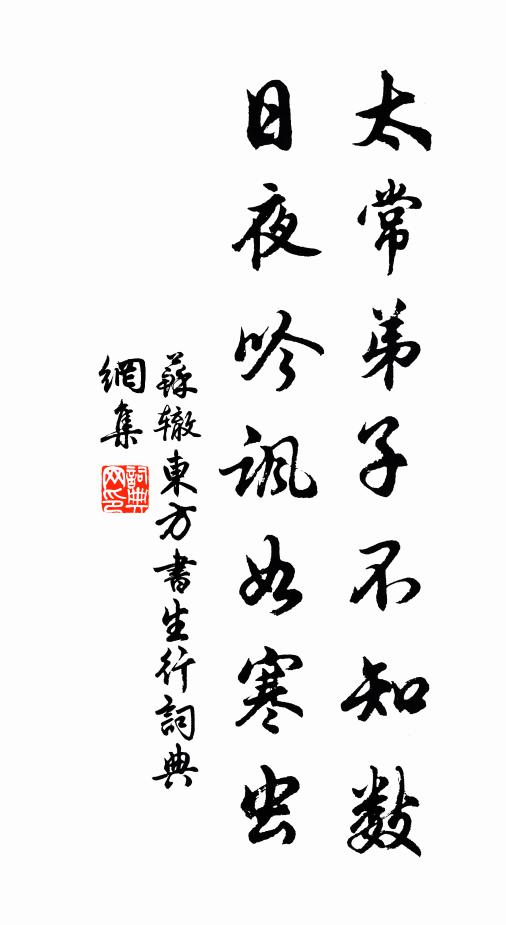 太常弟子不知数
日夜吟諷如寒虫
蘇辙東方書生行詞典
網集
詞典網印